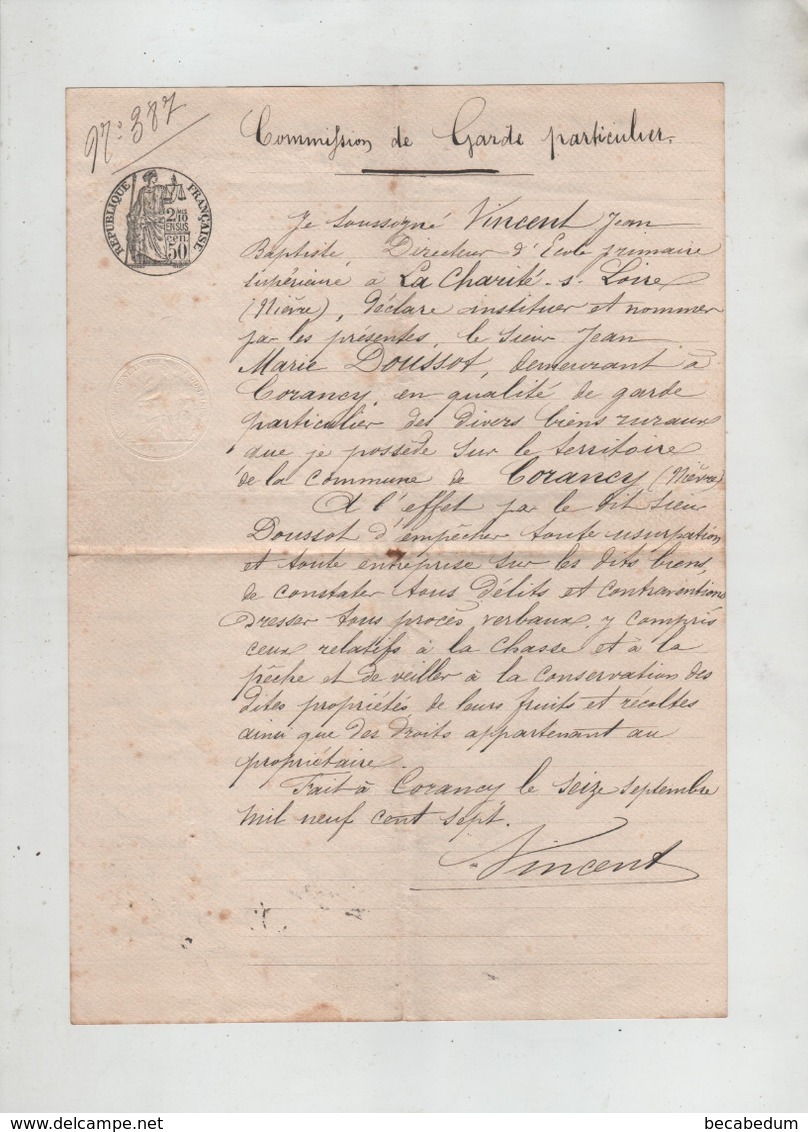 N° 387
Commission de Garde particulier.
RÉPUBLIQUE FRANÇAISE
2/10
EN SUS
50
Je soussigné Vincent Jean
Baptiste, Directeur d'Ecole primaire
supérieure à La Charité-s-Loire
(Nièvre), déclare instituer et nommer
par les présentes, le sieur Jean
Marie Doussot, demeurant à
Corancy, en qualité de garde
particulier des divers biens ruraux
que je possède sur le territoire
de la commune de Corancy (Nièvre)
A l'effet par le dit sieur
Doussot d'empêcher toute usurpation
et toute entreprise sur les dits biens,
de constater tous délits et contraventions
dresser tous procès verbaux, y compris
ceux relatifs à la chasse et à la
pêche et de veiller à la conservation des
dites propriétés, de leurs fruits et récoltes
ainsi que des droits appartenant au
propriétaire.
Fait à Corancy le seize septembre
mil neuf cent sept.
Vincent
becabedum